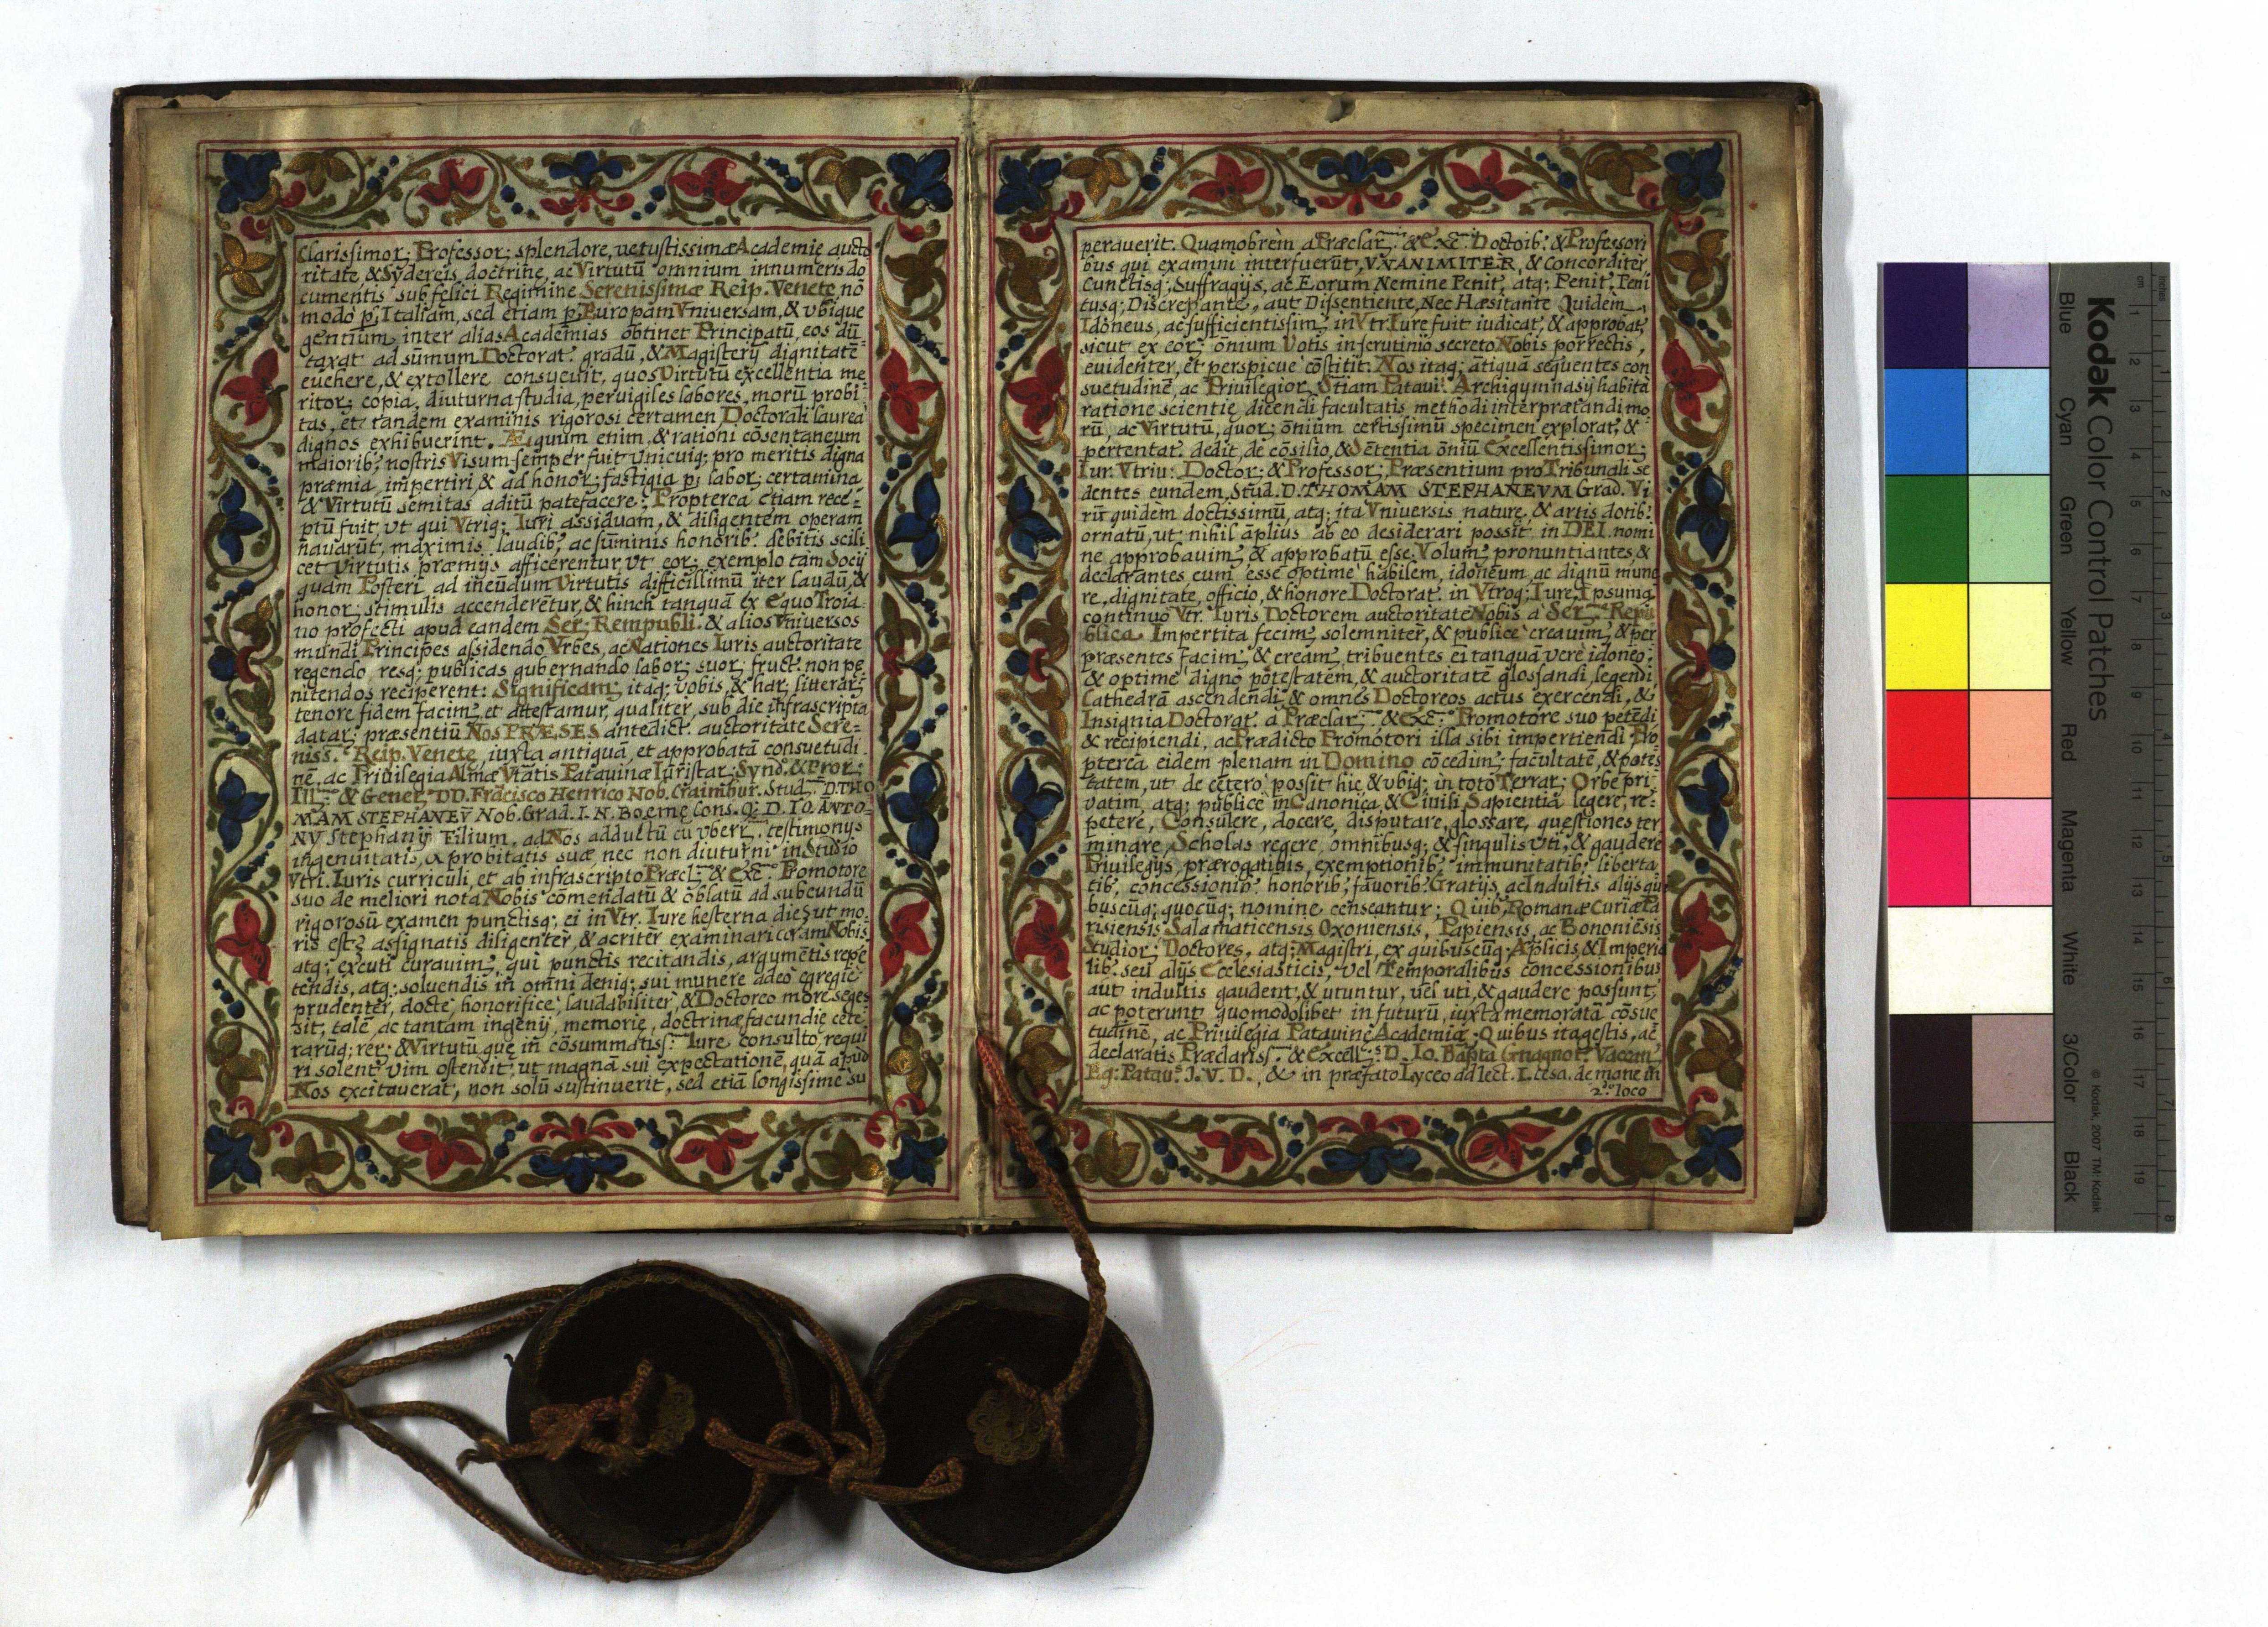 Clarissimor; Professor; splendore, vetustissimæ Academię aucto
ritate, & Sÿdereis doctrinę, ac Virtutū omnium innumeris do
cumentis sub felici Regimine Serenissimæ Reip. Venetę nō
modò p; Italiam, sed etiam p; Europam Vniuersam, & vbique
gentium inter alias Academias obtinet Principatū, eos dū-
taxat ad sūmum Doctorat? gradū, & Magisterij dignitatē
euehere, & extollere consueuit, quos Virtutū excellentia me
ritor; copia, diuturna studia, peruigiles labores, morū probi
tas, et tandem examinis rigorosi certamen Doctorali laurea
dignos exhibuerint. Æquum enim, & rationi cōsentaneum
maiorib? nostris Visum semper fuit vnicuiq; pro meritis digna
præmia impertiri & ad honor; fastigia p; labor; certamina
& Virtutū semitas aditū patefacere; Propterea etiam rece-
ptū fuit, vt qui Vtriq; Iuri assiduam, & diligentem operam
nauarūt, maximis laudib? ac sūminis honorib? debitis scili
cet Virtutis præmijs afficerentur, vt eor; exemplo tam Socij
quam Posteri ad ineūdum Virtutis difficillimū iter laudū, &
honor; stimulis accenderētur, & hinch tanquā ex Equo Troia
no profecti apud eandem Ser; Rempubli. & alios Vniuersos
mundi Principes assidendo Vrbes, ac Nationes Iuris auctoritate
regendo resq; publicas gubernando labor; suor; fruct? non pę
nitendos reciperent: Significam? itaq; vobis, & har; litterar;
tenore fidem facim?, et attestamur, qualiter sub die infrascripta
datar; præsentiū Nos PRÆSES antedict? auctoritate Sere-
niss.æ Reip. Venetę, iuxta antiquā, et approbatā consuetudi
nē, ac Priuilegia Almæ Vtātis Patauinæ Iūristar; Synd. & Pror;
Ill. & Gener. DD. Frācisco Henrico Nob. Craimbur. Stud. D. THO
MAM STEPHANEV̄ Nob. Grad. I. N. Boemę Cons. Q. D. IO. ANTO-
NY Stephanij Filium, ad Nos adductū cū vberr. testimonijs
ingenuitatis, & probitatis suæ, nec non diuturni in Studio
Vtri. Iuris curriculi, et ab infrascripto Præcl. & Exc. Promotore
suo de meliori nota Nobis cōmendatū & oblatū ad subeundū
rigorosū examen punctisq; ei in Vtr. Iure hesterna die, ut mo-
ris est, assignatis diligenter & acriter examinari coram Nobis
atq; excuti curauim?, qui punctis recitandis, argumētis repe
tendis, atq; soluendis in omni deniq; sui munere adeò egregiè
prudenter, doctè, honorificè, laudabiliter, & Doctoreo more sēges
sit; talē, ac tantam ingenij, memorię, doctrinæ facundię cete-
rarūq; rer; & Virtutū quę in cōsummatiss: Iure consulto requi
ri solent vim ostendit, ut magnā sui expectationē, quā apud
Nos excitauerat, non solū sustinuerit, sed etiā longissimè su
perauerit. Quamobrèm a Præclar. & Exc. Doctorib? & Professori
bus qui examini interfuerūt, VNANIMITER, & Concorditer
Cunctisq; Suffragijs, ac Eorum Nemine Penit? atq; Penit? Peni
tusq; Discrepante, aut Dissentiente, Nec Hæsitante Quidem,
Idoneus, ac sufficientissim? in Vtr. Iure fuit iudicat? & approbat?
sicut ex eor; ōnium Votis in scrutinio secreto Nobis porrectis,
euidenter, et perspicuè cōstitit. Nos itaq; ātiquā sequentes con
suetudinē, ac Priuilegior. S̄tiam Pataui. Archigymnasij habita
ratione scientię, dicendi facultatis methodi interprætandi mo
rū, ac Virtutū, quor; ōnium certissimū specimen explorat? &
pertentat. dedit, de cōsilio, & sētentia ōniū Excellentissimor;
Iur. Vtriu: Doctor; & Professor; Præsentium pro Tribunali se
dentes eundem, Stud. D. THOMAM STEPHANEVM Grad. Vi
rū quidem doctissimū, atq; ita Vniuersis naturę, & artis dotib?
ornatū, ut nihil āplius ab eo desiderari possit in DEI nomi
ne approbauim? & approbatū esse Volum? pronuntiantes, &
declarantes eum esse optimè habilem, idoneum, ac dignū mune
re, dignitate, officio, & honore Doctorat? in Vtroq; Iure, Ipsumq;
continuò Vtr. Iuris Doctorem auctoritate Nobis a Ser. Repu
blica Impertita fecim? solemniter, & publicè creauim? & per
præsentes facim? & cream? tribuentes ei tanquā verè idoneo,
& optimè digno potestatem, & auctoritatē glossandi, legendi,
Cathedrā ascendendi, & omnes Doctoreos actus exercendi, &
Insignia Doctorat? a Præclar. & Exc. Promotore suo petēdi
& recipiendi, ac Prædicto Promotori illa sibi impertiendi, Pro
pterea eidem plenam in Domino cōcedim? facultatē, & potes
tatem, ut de cetero possit hic, & vbiq; in toto Terrar; Orbe pri
vatim, atq; publicè in Canonica, & Ciuili Sapientia legere, re-
petere, Consulere, docere, disputare, glossare, quęstiones ter
minare, Scholas regere, omnibusq; & singulis uti, & gaudere
Priuilegijs, prærogatiuis, exemptionib? immunitatib? liberta
tib? concessionib? honorib? fauorib? Gratijs, ac Indultis alijs qui
buscūq; quocūq; nomine censeantur; Quib? Romanæ Curiæ Pa
risiensis, Salamāticensis, Oxoniensis, Papiensis, ac Bononiēsis
Studior; Doctores, atq; Magistri, ex quibuscūq; Aplicis, & Imperia
lib? seu alijs Ecclesiasticis, Vel Temporalibus concessionibus
aut indultis gaudent, & utuntur, vel uti, & gaudere possunt,
ac poterunt quomodolibet in futurū, iuxta memoratā cōsue
tudinē, ac Priuilegia Patauinę Academiæ. Quibus ita gestis, ac
declaratis Præclariss. & Excell. D. Io. Bap̄ta Gnagnot? Vaccam?
Eq: Patau. I. V. D., & in præfato Lyceo ad lect. I. cesa. de mane in
2.º loco
Kodak Color Control Patches
Blue Cyan Green Yellow Red Magenta White 3/Color Black
© Kodak, 2007 TM: Kodak
cm 1 2 3 4 5 6 7 8 9 10 11 12 13 14 15 16 17 18 19
inches 1 2 3 4 5 6 7 8